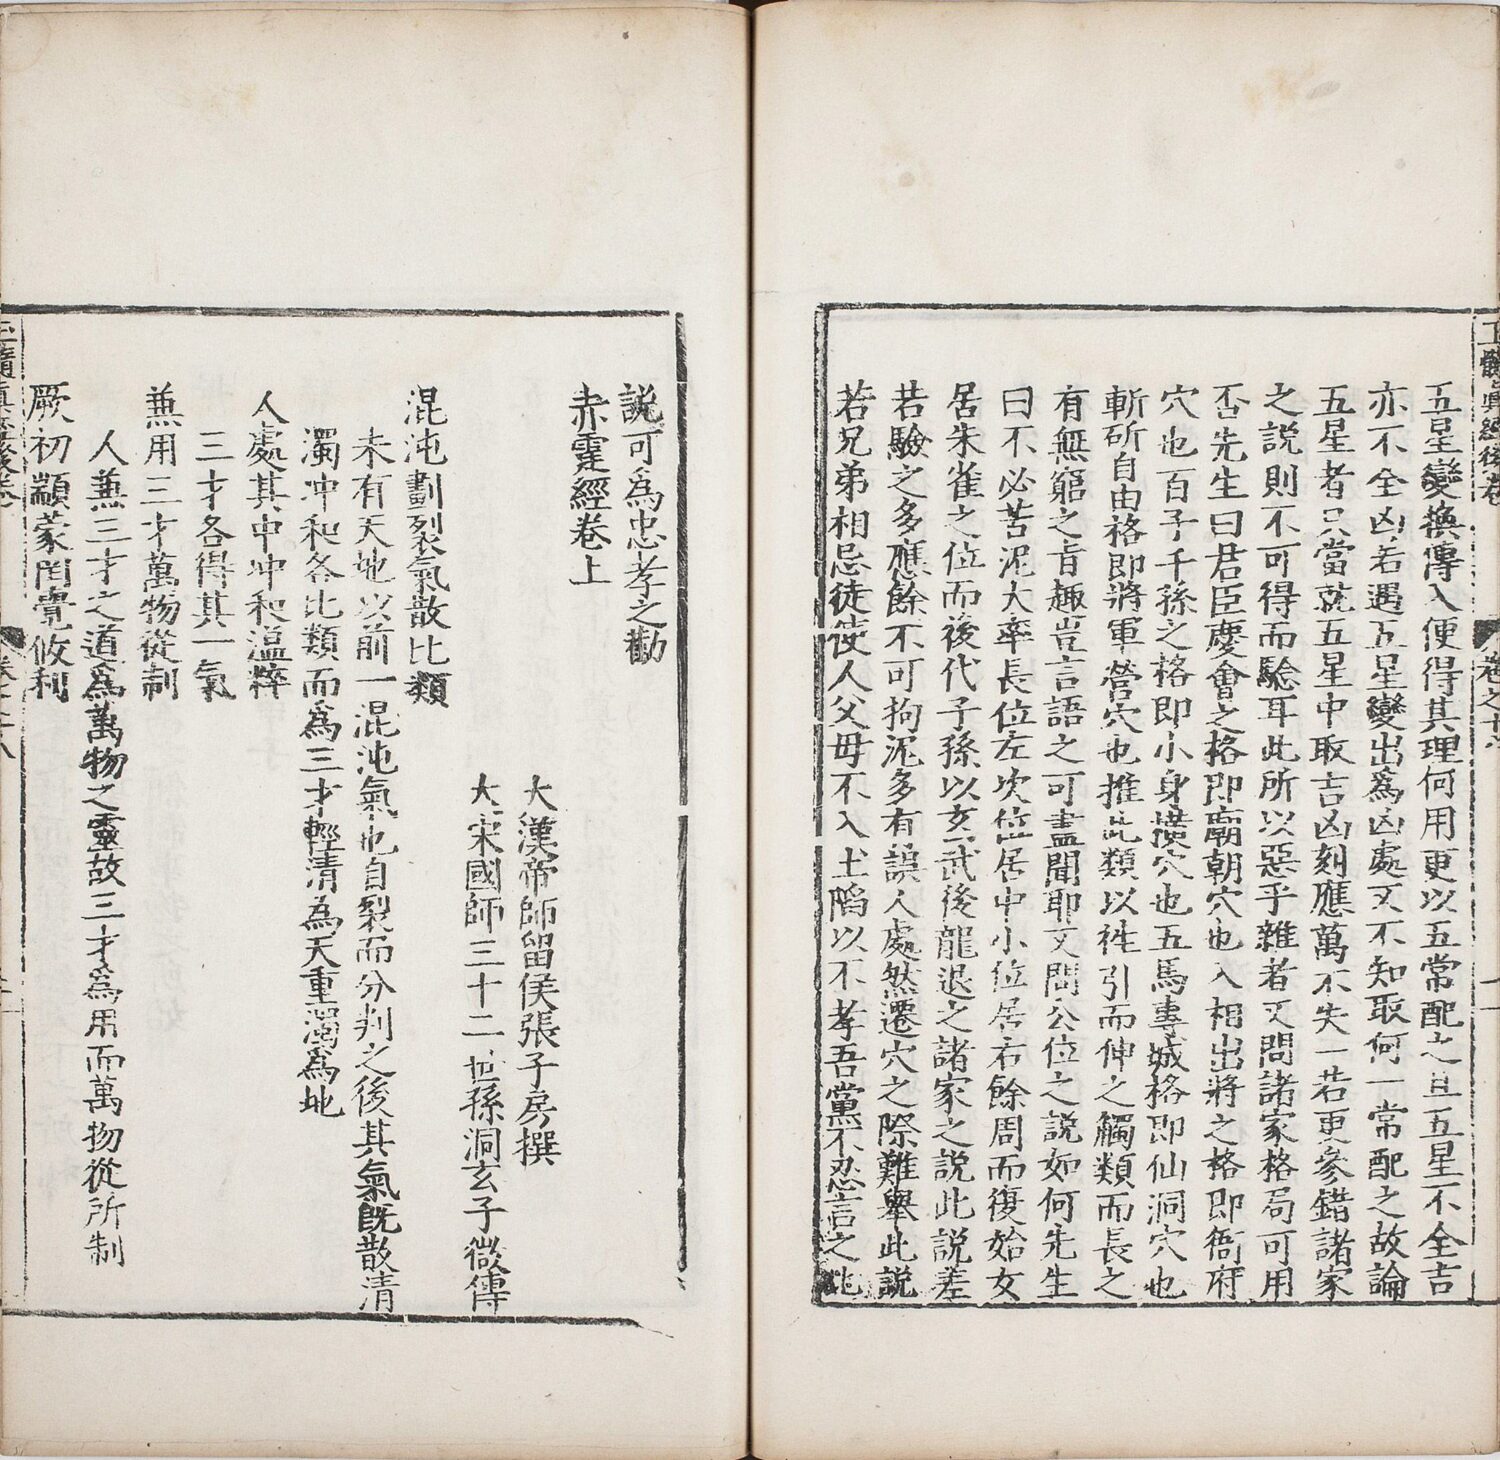 五星變換傳入便得其理何用更以五常配之且五星不全吉
亦不全凶若遇五星變出爲凶處又不知取何一常配之故論
五星者只當就五星中取吉凶刻應萬不失一若更參錯諸家
之說則不可得而驗耳此所以惡乎雜者又問諸家格局可用
否先生曰君臣慶會之格即廟朝穴也入相出將之格即衙府
穴也百子千孫之格即小身横穴也五馬專城格即仙洞穴也
斬斫自由格即將軍營穴也推此類以徃引而伸之觸類而長之
有無窮之旨趣豈言語之可盡聞耶又問公位之說如何先生
曰不必苦泥大率長位左次位居中小位居右餘周而復始女
居朱雀之位而後代子孫以玄武後龍退之諸家之說此說差
若驗之多應餘不可拘泥多有誤人處然遷穴之際難舉此說
若兄弟相忌徒使人父母不入土陷以不孝吾黨不忍言之此
說可爲忠孝之勸
赤霆經卷上
大漢帝師留侯張子房撰
大宋國師三十二世孫洞玄子微傳
混沌劃裂氣散比類
未有天地以前一混沌氣也自裂而分判之後其氣旣散清
濁冲和各比類而爲三才輕清為天重濁爲地
人處其中冲和溫粹
三才各得其一氣
兼用三才萬物從制
人兼三才之道爲萬物之靈故三才爲用而萬物從所制
厥初顓蒙罔覺攸利